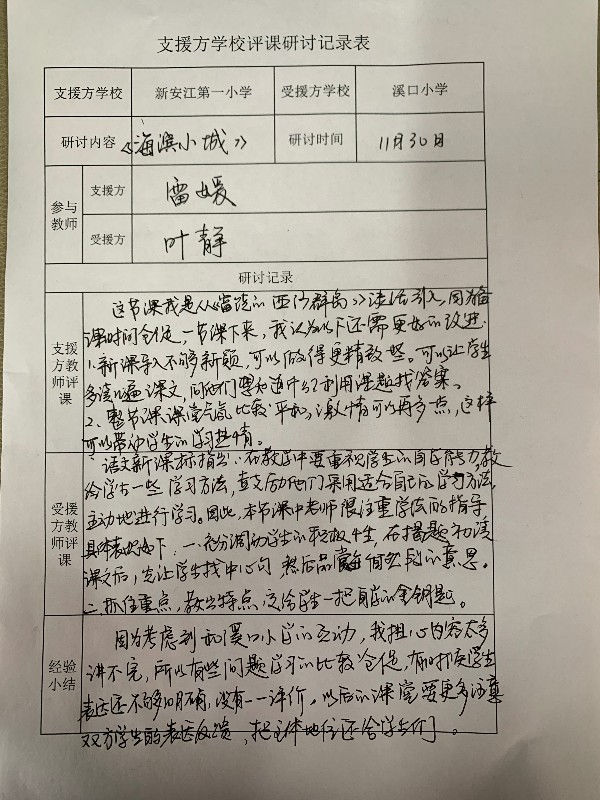 支援方学校评课研讨记录表
支援方学校 新安江第一小学 受援方学校 溪口小学
研讨内容 《海滨小城》 研讨时间 11月30日
参与教师 支援方 雷媛
受援方 叶静
研讨记录
支援方教师评课
这节课我是从《富饶的西沙群岛》法引入,因为备
课时间仓促,一节课下来,我认为以下还需更好的改进:
1、新课导入不够新颖,可以做得更精致些。可以让学生
多读几遍课文,问他们想知道什么?利用课题找答案。
2、整节课课堂气氛比较平和,激情可以再多一点,这样
可以带动学生的学习热情。
受援方教师评课
语文新课标指出:在教学中要重视学生的自学能力,教
给学生一些学习方法,鼓励他们采用适合自己的学习方法,
主动地进行学习。因此,本节课中老师很注重学法的指导,
具体表现如下:一、充分调动学生的积极性,在揭题初读
课文后,先让学生找中心句,然后品每句的意思。
二、抓住重点,教出特点,交给学生一把自学的金钥匙。
经验小结
因为考虑到和溪口小学的互动,我担心内容太多
讲不完,所以有些问题学习的比较仓促,有时候学生
表达还不够明确,没有一一评价。以后的课堂要更多注意
双方学生的表达反馈,把主体地位还给学生们。